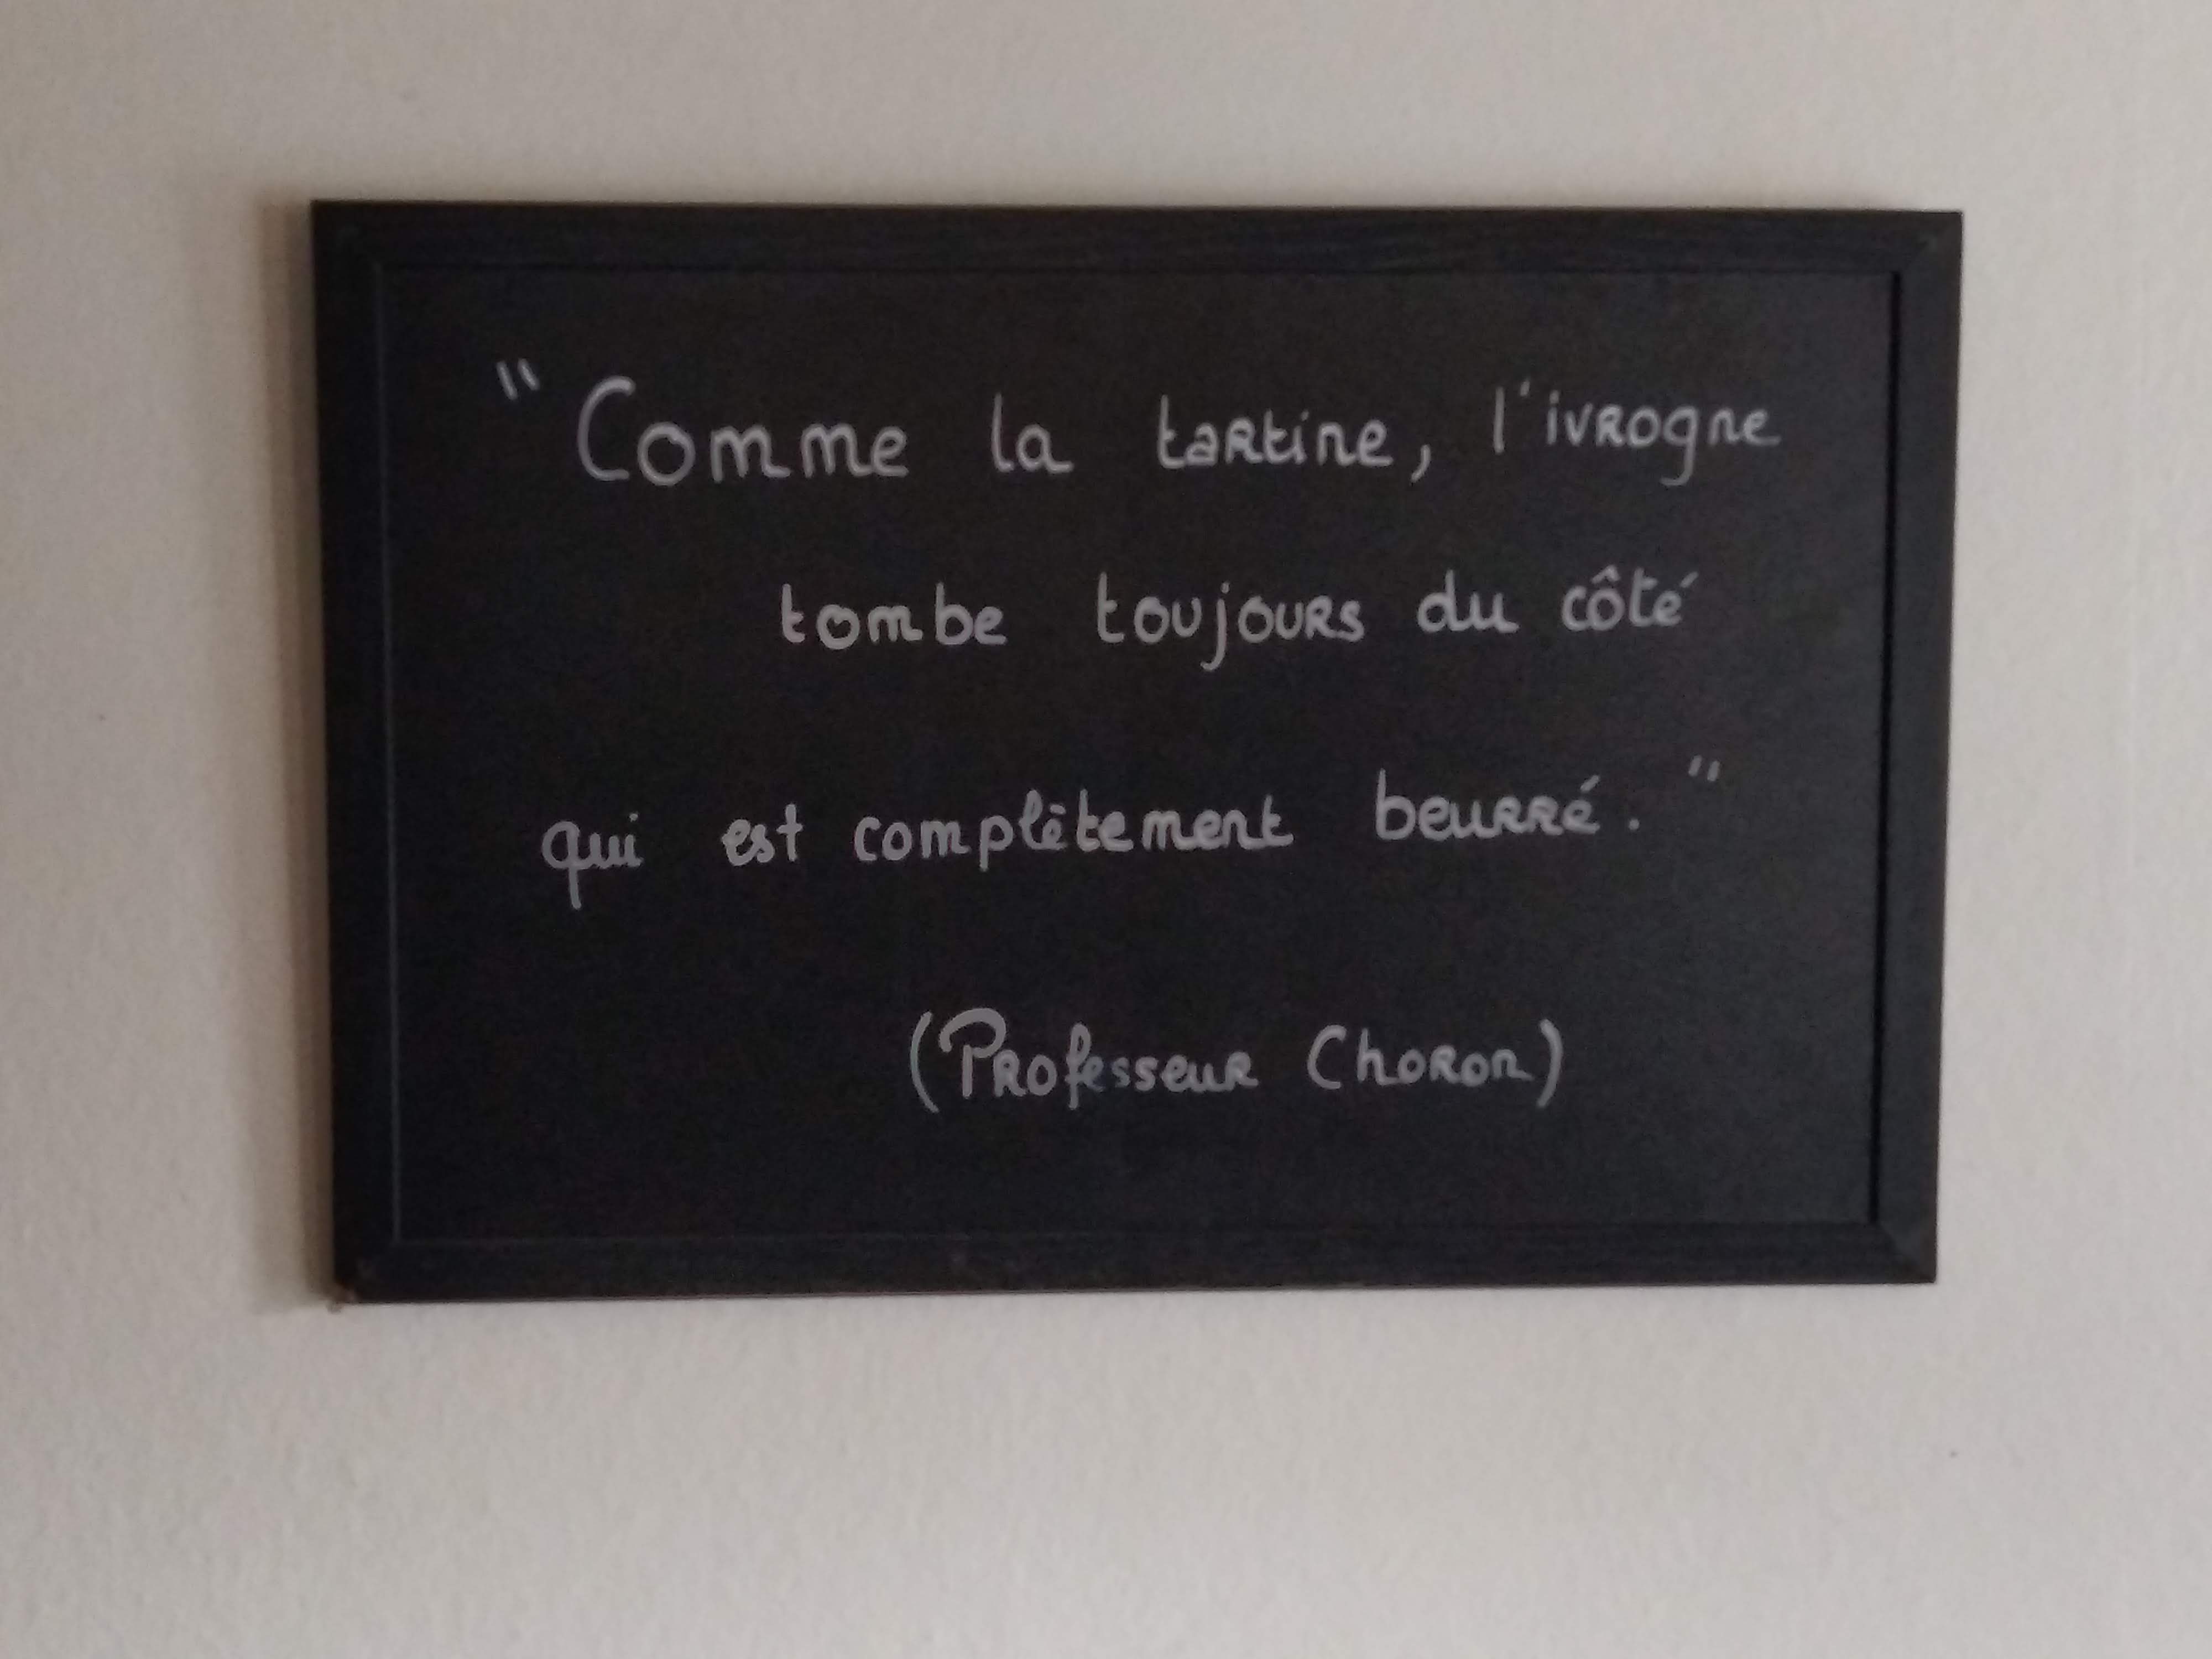 "Comme la tartine, l'ivrogne
tombe toujours du côté
qui est complètement beurré."
(Professeur Choron)